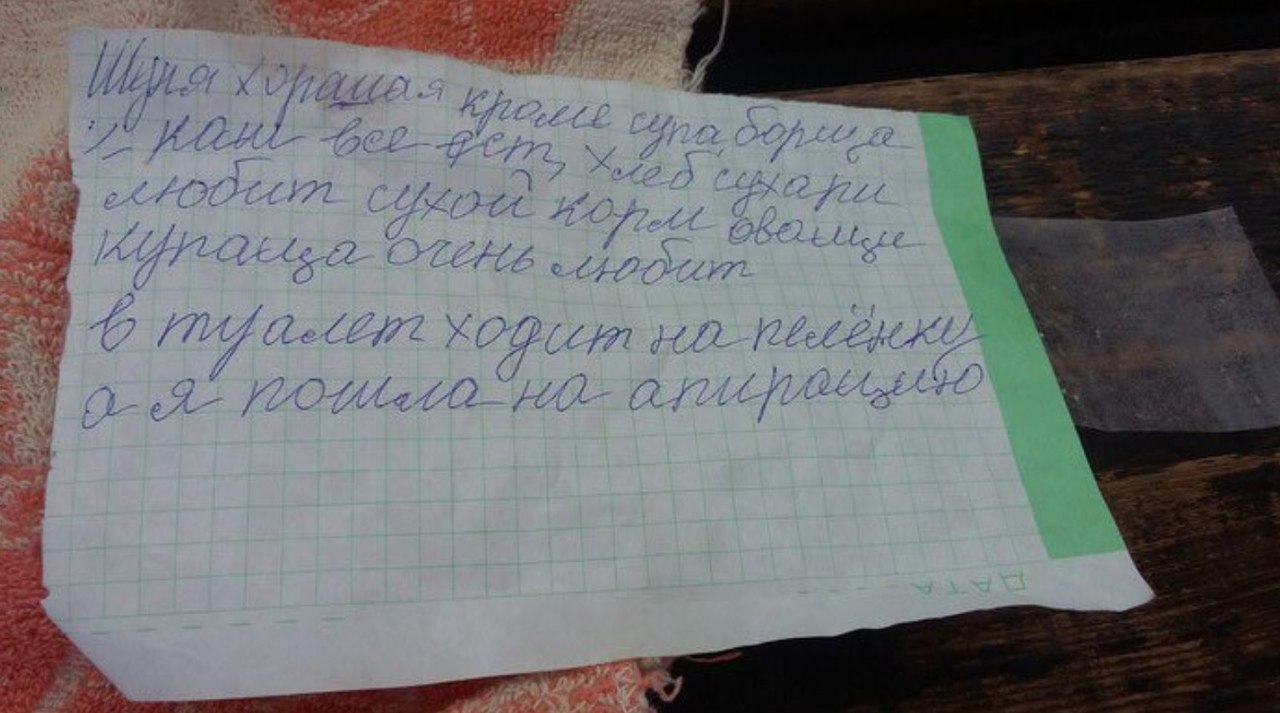 Шуня хорашая кроме супа, борща
:) каш все ест, хлеб, сухари
любит сухой корм оващи
купаица очень любит
в туалет ходит на пелёнку
а я пошла на апирацию
ДАТА